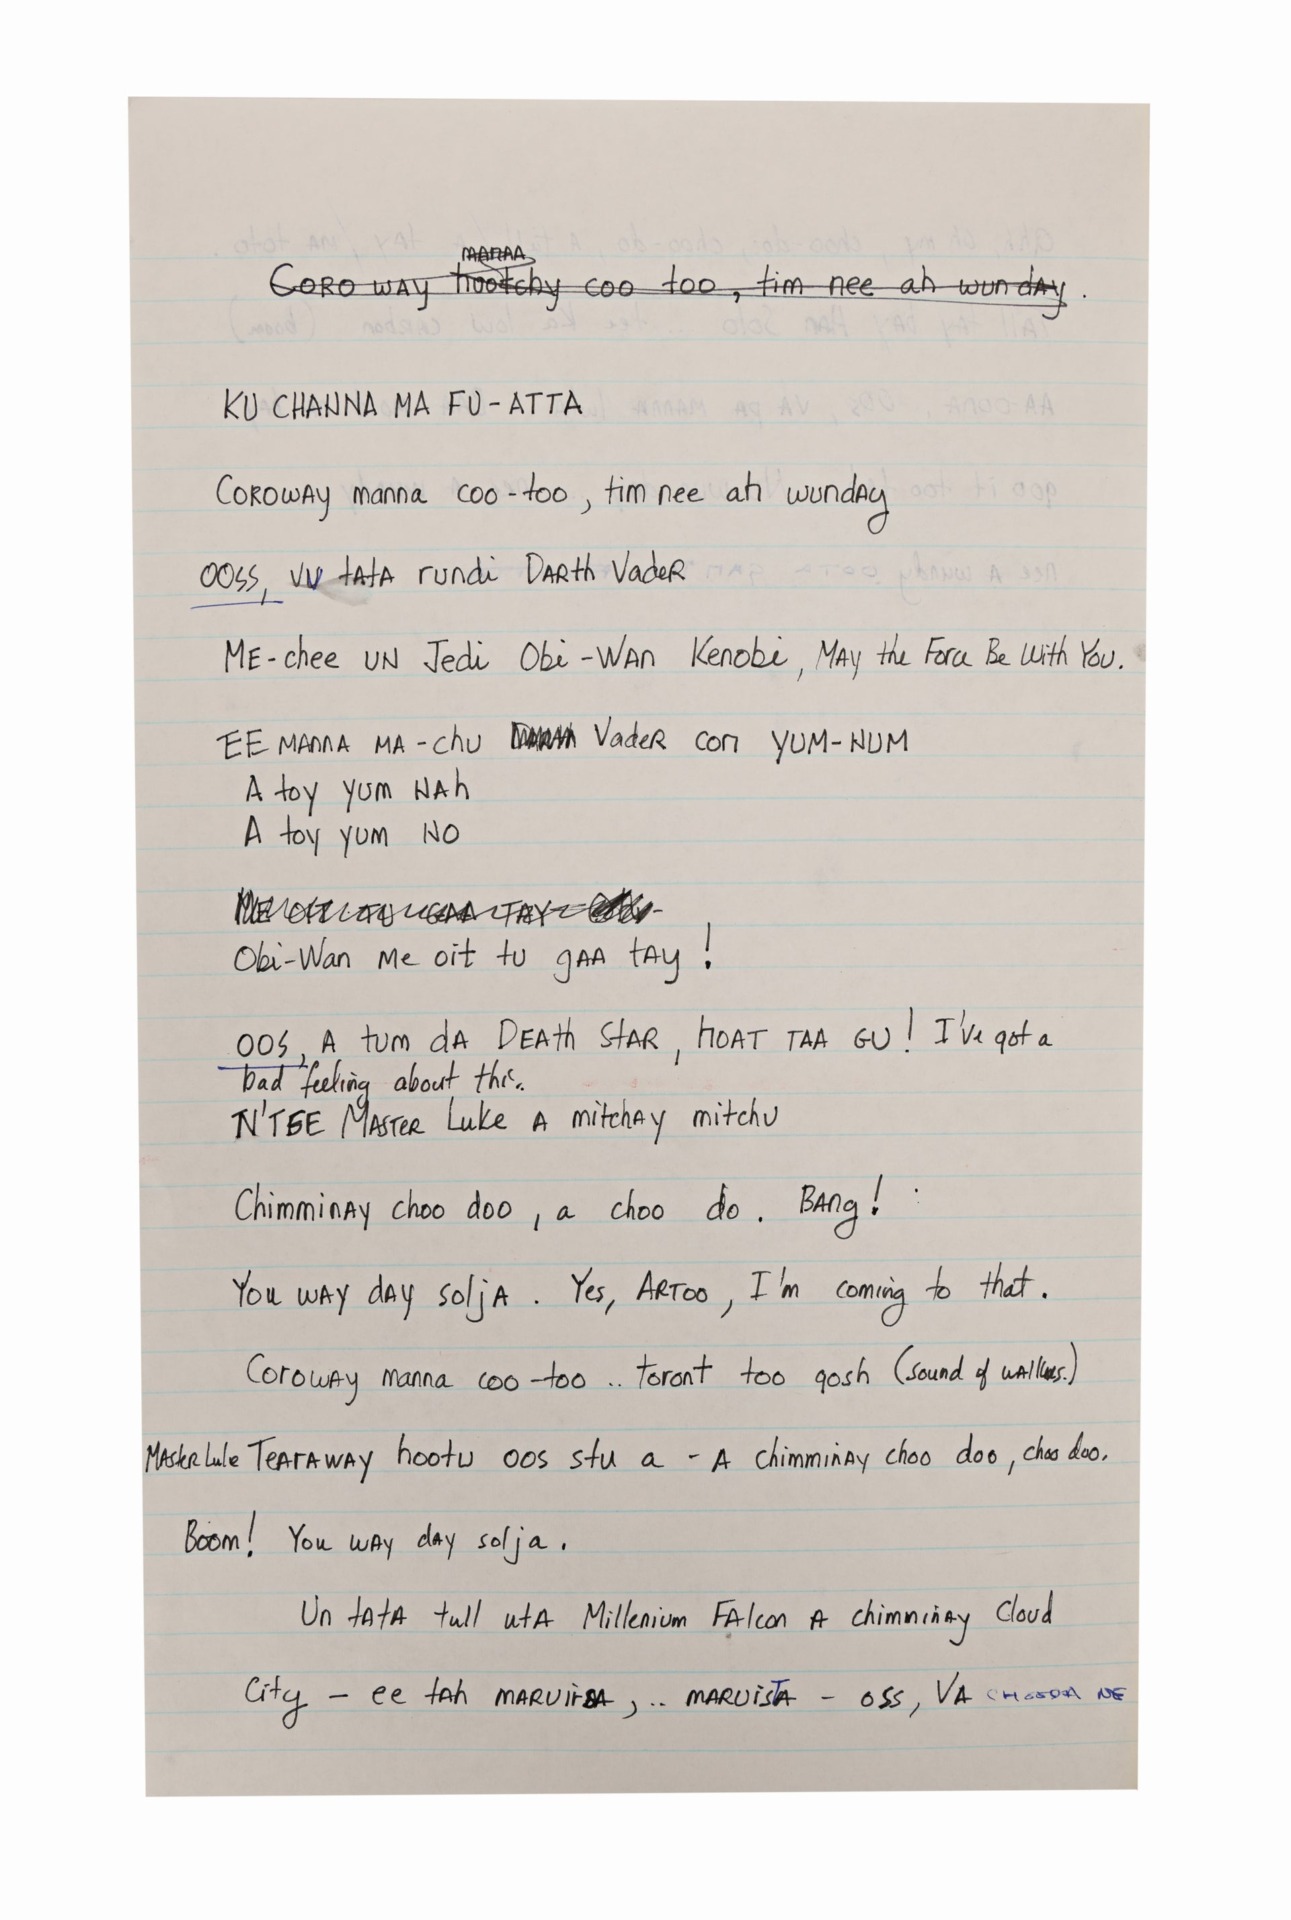 MANAA
CORO WAY hootchy coo too, tim nee ah wunday.
KU CHANNA MA FU-ATTA
COROWAY manna coo-too, tim nee ah wunday
OOSS, VU tATA rundi DARth VadeR
ME-chee UN Jedi Obi-WAN Kenobi, MAY the Force Be With You.
EE MANNA MA-chu VadeR con YUM-NUM
A toy yum NAh
A toy yum NO
ME OIT TU GAA TAY
Obi-Wan Me oit tu gAA tAy!
OOS, A tum dA DEAth StAR, HOAT TAA GU! I've got a
bad feeling about this.
N'TEE MASTER Luke A mitchAy mitchu
ChimminAy choo doo, a choo do. BAng!
You wAy dAy soljA. Yes, ARTOO, I'm coming to that.
Coroway manna coo-too .. toront too gosh (sound of walkers.)
MASter Luke TeARAWAY hootu oos stu a - A chimminAy choo doo, choo doo.
Boom! You wAy dAy solja.
Un tAtA tull utA Millenium FAlcon A chimminAy Cloud
City - ee tAh MARUiSA, .. MARUiSTA - oss, VA NE